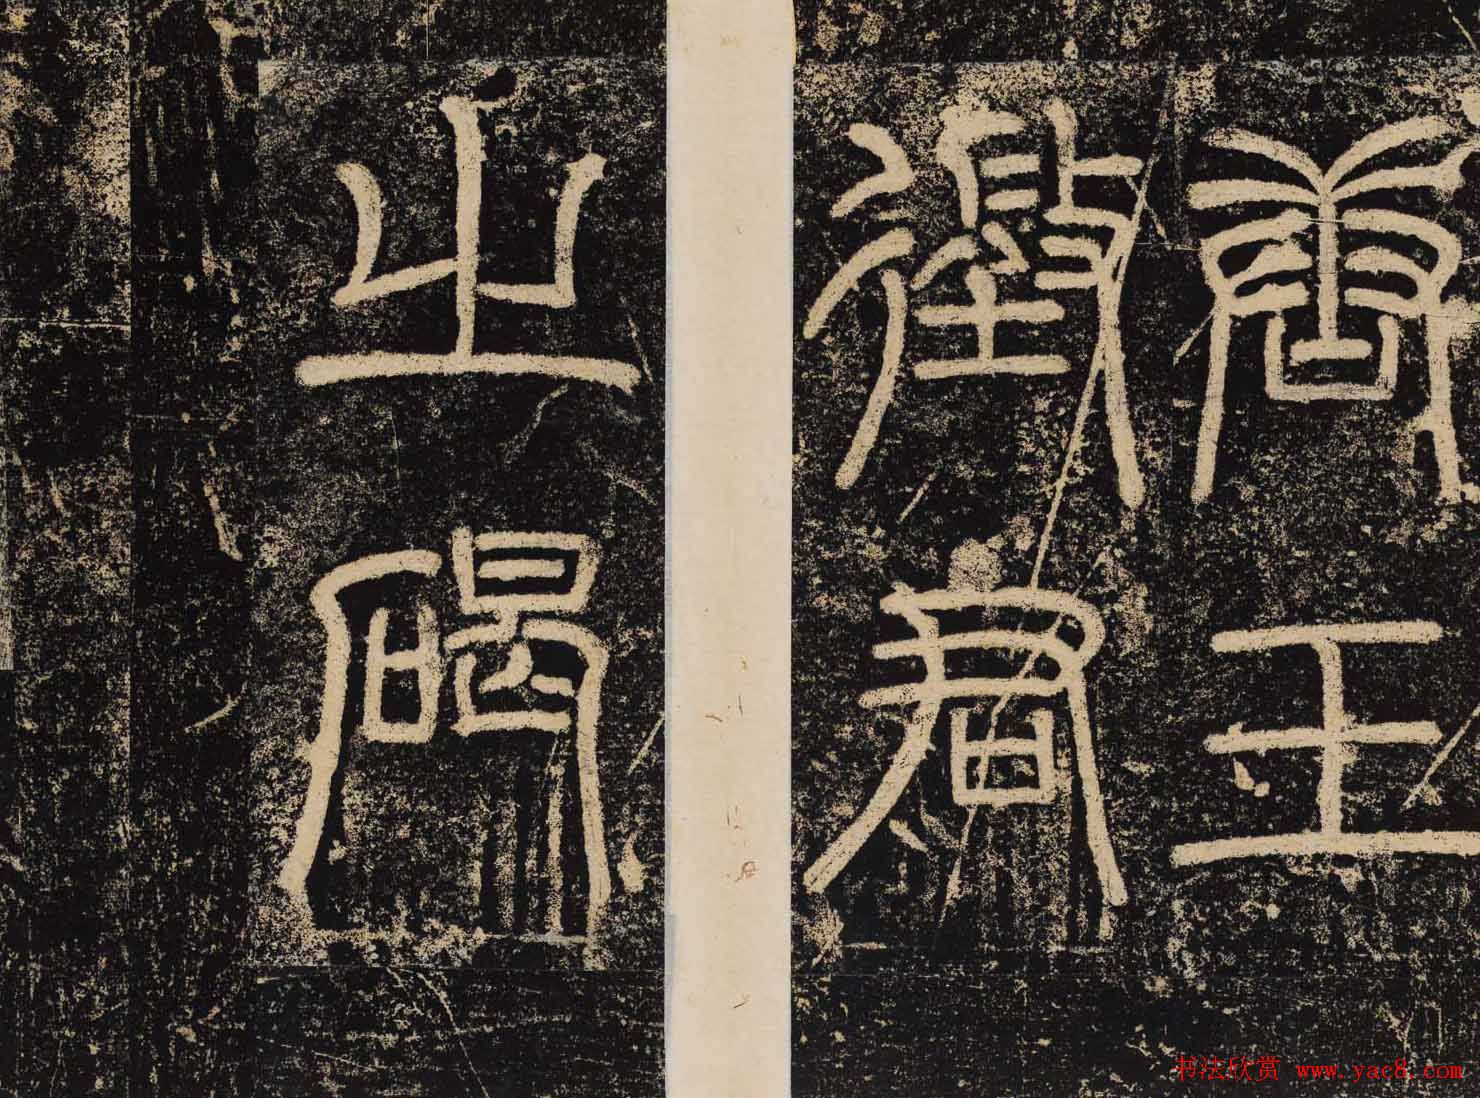 唐王
徵君
之碣
书法欣赏 www.yac8.com